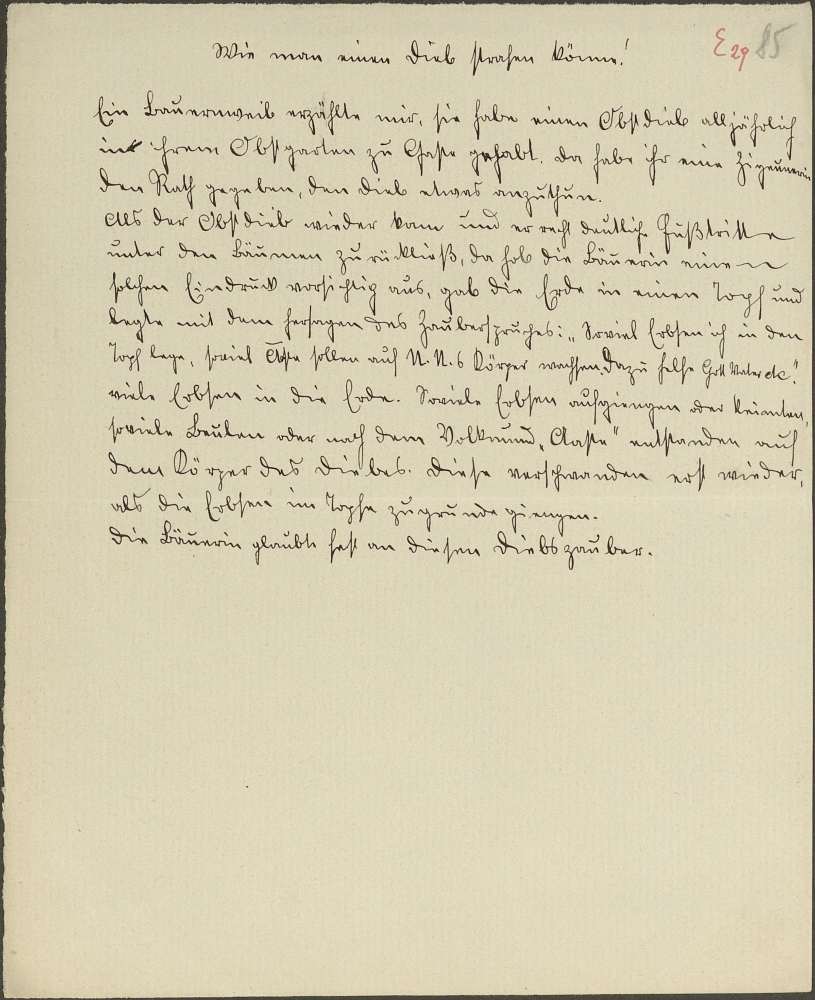 E 29 85
Wie man einen Dieb strafen könne!
Ein Bauernweib erzählte mir, sie habe einen Obstdieb alljährlich
in ihrem Obstgarten zu Gaste gehabt. Da habe ihr eine Zigeunerin
den Rath gegeben, den Dieb etwas anzuthun.
Als der Obstdieb wieder kam und er recht deutliche Fußtritte
unter den Bäumen zurückließ, da hob die Bäuerin einen
solchen Eindruck vorsichtig aus, gab die Erde in einen Topf und
legte mit dem Hersagen des Zauberspruches: „Soviel Erbsen ich in den
Topf lege, soviel Aste sollen auf N. N.s Körper wachsen. Dazu helfe Gott Vater etc."
viele Erbsen in die Erde. Soviele Erbsen aufgiengen oder keimten,
soviele Beulen oder nach dem Volksmund „Aaste" entstanden auf
dem Körper des Diebes. Diese verschwanden erst wieder,
als die Erbsen im Topfe zugrunde giengen.
Die Bäuerin glaubte fest an diesen Diebszauber.